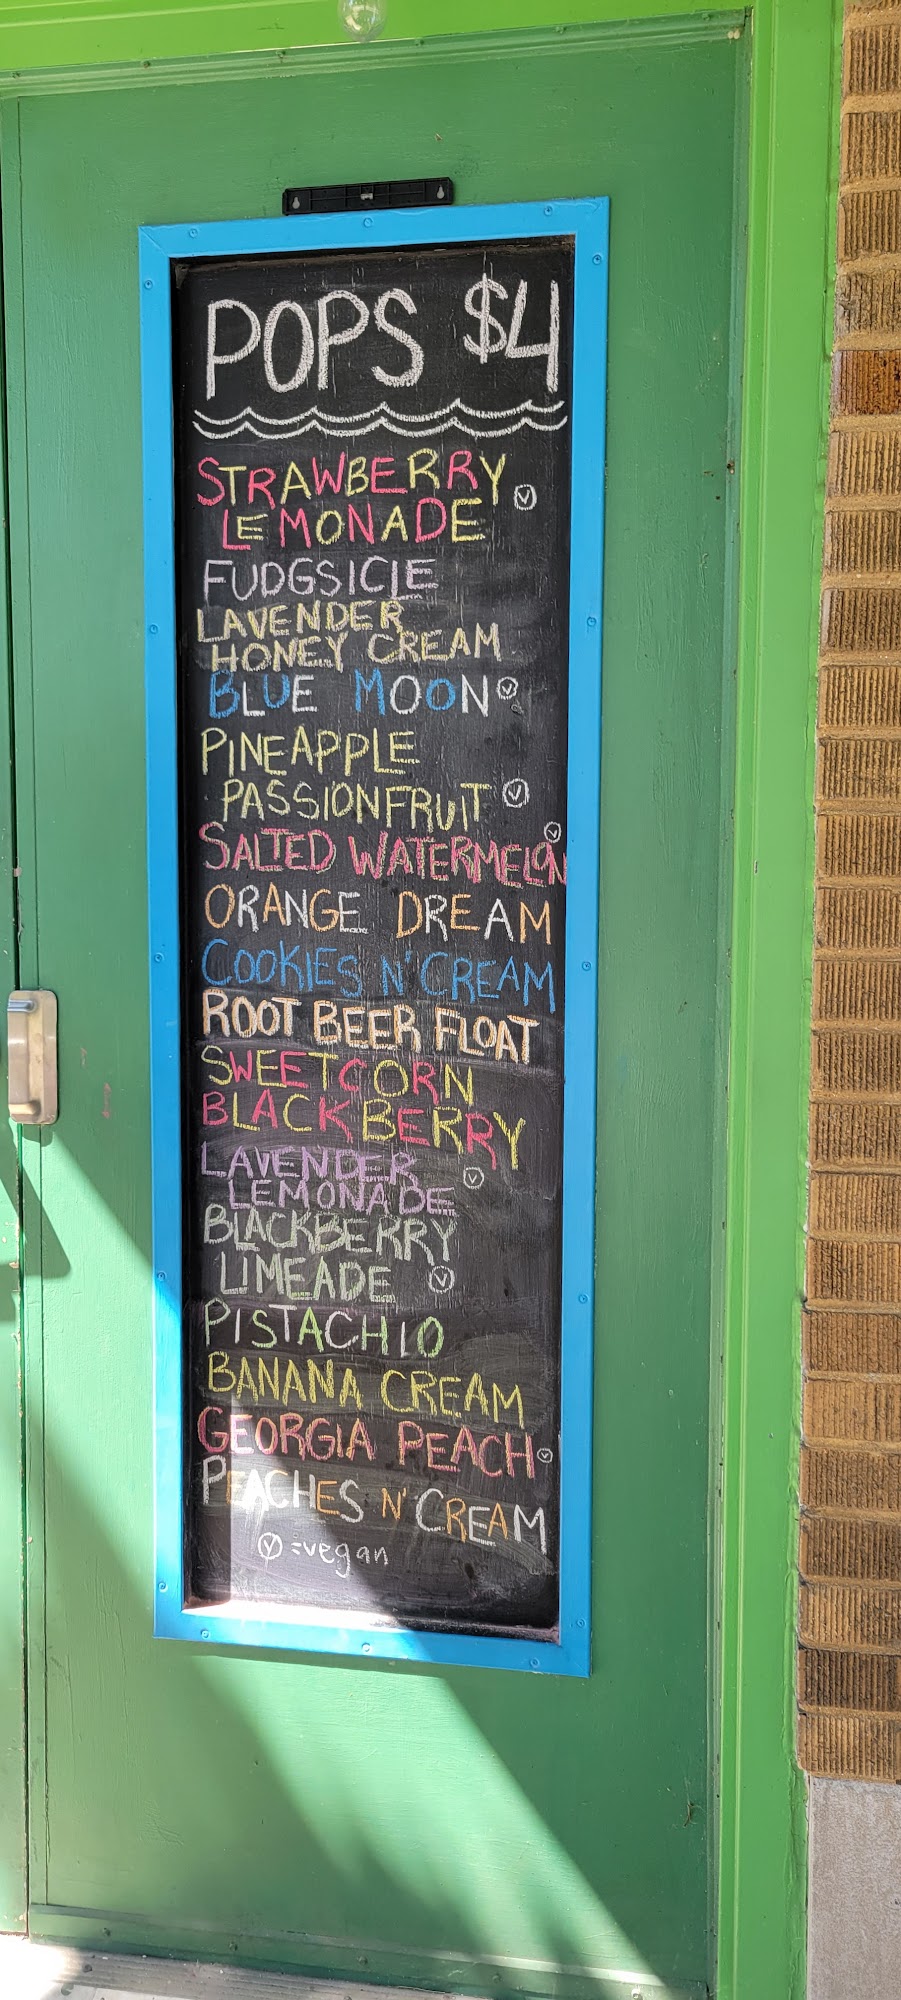 POPS $4
STRAWBERRY
LEMONADE Ⓥ
FUDGSICLE
LAVENDER
HONEY CREAM
BLUE MOON Ⓥ
PINEAPPLE
PASSIONFRUIT Ⓥ
SALTED WATERMELON Ⓥ
ORANGE DREAM
COOKIES N' CREAM
ROOT BEER FLOAT
SWEETCORN
BLACKBERRY
LAVENDER
LEMONADE Ⓥ
BLACKBERRY
LIMEADE Ⓥ
PISTACHIO
BANANA CREAM
GEORGIA PEACH Ⓥ
PEACHES N' CREAM
Ⓥ =vegan